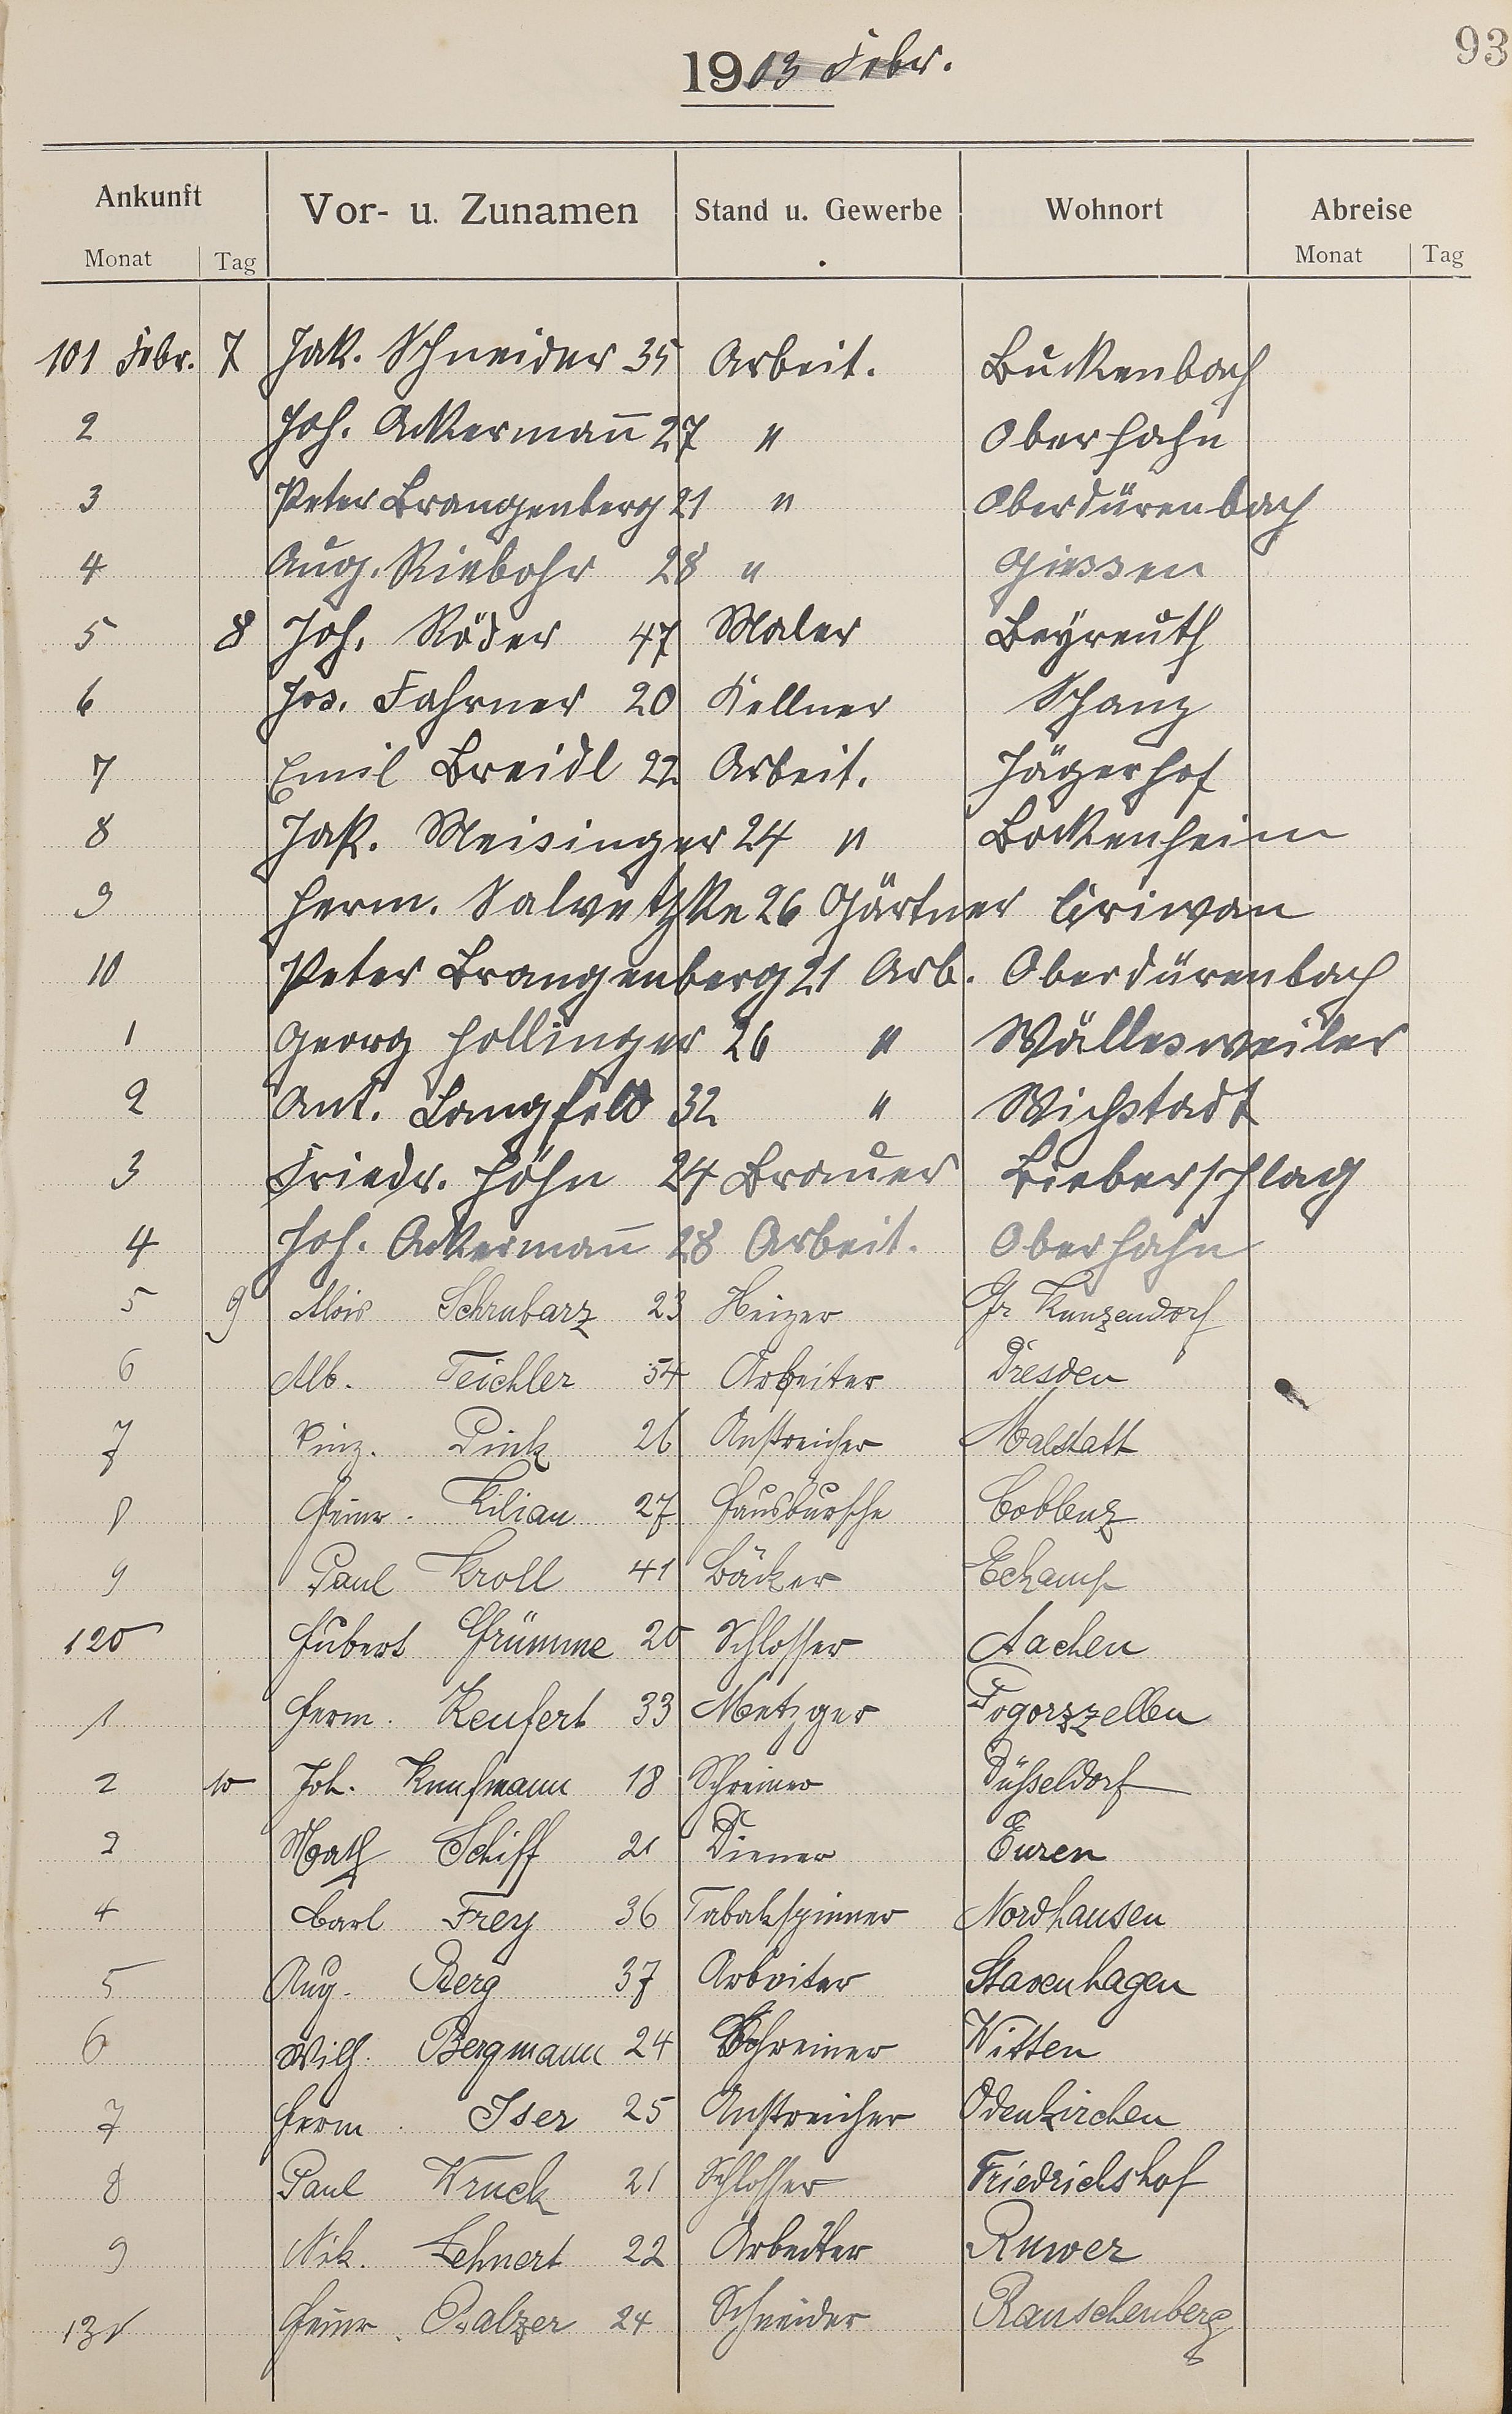 93
1903 Febr.
Ankunft Vor- u. Zunamen Stand u. Gewerbe Wohnort Abreise
Monat Tag Monat Tag
101 Febr. 7 Jak. Schneider 35 Arbeit. Buckenbach
2 Joh. Ackermann 27 " Oberhahn
3 Peter Brangenberg 21 " Oberdürenbach
4 Aug. Riebohr 28 " Giessen
5 8 Joh. Röder 47 Maler Beyreuth
6 Jos. Fahrner 20 Kellner Schanz
7 Emil Breidl 22 Arbeit. Jägerhof
8 Jak. Meisinger 24 " Bockenheim
9 Herm. Salvetzke 26 Gärtner Criwan
10 Peter Brangenberg 21 Arb. Oberdürenbach
1 Georg Hollinger 26 " Wällesweiler
2 Ant. Langfeld 32 " Wichstadt
3 Friedr. Höhn 24 Brauer Bieberschlag
4 Joh. Ackermann 28 Arbeit. Oberhahn
5 9 Alois Schrubarz 23 Heizer Gr. Kunzendorf
6 Alb. Teichler 54 Arbeiter Dresden
7 Vinz. Pink 26 Anstreicher Malstatt
8 Heinr. Kilian 27 Hausbursche Coblenz
9 Paul Kroll 41 Bäcker
120 Hubert Grümme 20 Schlosser Aachen
1 Herm. Renfert 33 Metzger Pogorzzellen
2 10 Joh. Kaufmann 18 Schreiner Düsseldorf
2 Math Schiff 21 Diener Euren
4 Carl Frey 36 Tabakspinner Nordhausen
5 Aug. Berg 37 Arbeiter Stavenhagen
6 Wilh. Bergmann 24 Schreiner Witten
7 Herm. Iser 25 Anstreicher Odenkirchen
8 Paul Kruck 21 Schlosser Friedrichshof
9 Nik. Lehnert 22 Arbeiter Ruwer
130 Heinr. Balzer 24 Schneider Rauschenberg